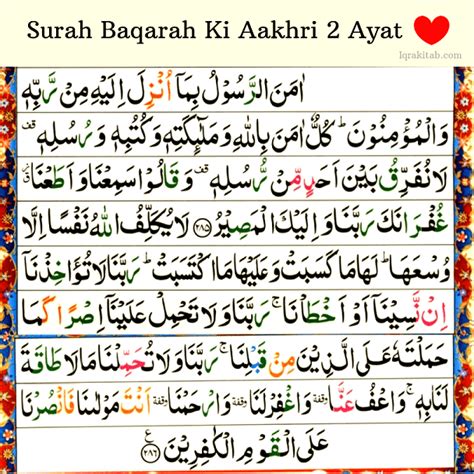 Surah Baqarah Ki Aakhri 2 Ayat
Iqrakitab.com
اٰمَنَ الرَّسُوْلُ بِمَاۤ اُنْزِلَ اِلَيْهِ مِنْ رَّبِّهٖ
وَالْمُؤْمِنُوْنَ ؕ كُلٌّ اٰمَنَ بِاللّٰهِ وَمَلٰٓئِكَتِهٖ وَكُتُبِهٖ وَرُسُلِهٖ قف
لَا نُفَرِّقُ بَيْنَ اَحَدٍ مِّنْ رُّسُلِهٖ قف وَقَالُوْا سَمِعْنَا وَاَطَعْنَا ق
غُفْرَانَكَ رَبَّنَا وَاِلَيْكَ الْمَصِيْرُ ﴿۲۸۵﴾ لَا يُكَلِّفُ اللّٰهُ نَفْسًا اِلَّا
وُسْعَهَا ؕ لَهَا مَا كَسَبَتْ وَعَلَيْهَا مَا اكْتَسَبَتْ ؕ رَبَّنَا لَا تُؤَاخِذْنَاۤ
اِنْ نَّسِيْنَاۤ اَوْ اَخْطَاْنَا ۚ رَبَّنَا وَلَا تَحْمِلْ عَلَيْنَاۤ اِصْرًا كَمَا
حَمَلْتَهٗ عَلَى الَّذِيْنَ مِنْ قَبْلِنَا ۚ رَبَّنَا وَلَا تُحَمِّلْنَا مَا لَا طَاقَةَ
لَنَا بِهٖ ۚ وَاعْفُ عَنَّا وقفة وَاغْفِرْ لَنَا وقفة وَارْحَمْنَا وقفة اَنْتَ مَوْلٰىنَا فَانْصُرْنَا
عَلَى الْقَوْمِ الْكٰفِرِيْنَ ﴿۲۸۶﴾ ع